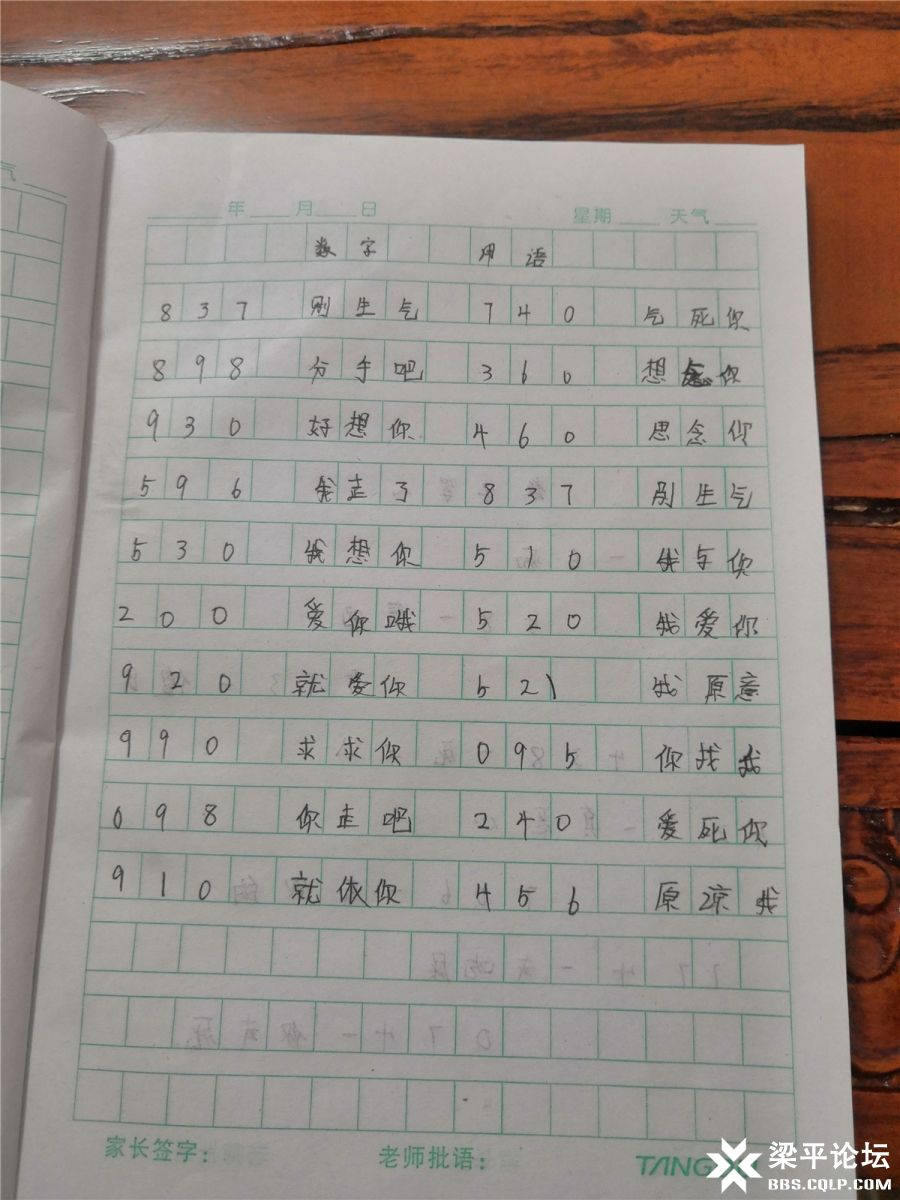 气
年 月 日 星期 天气
数字 用语
837 别生气 740 气死你
898 分手吧 360 想念你
930 好想你 460 思念你
596 我走了 837 别生气
530 我想你 510 我与你
200 爱你哦 520 我爱你
920 就爱你 521 我原意
990 求求你 095 你找我
098 你走吧 240 爱死你
910 就依你 456 原凉我
家长签字： 老师批语： TANG
梁平论坛
BBS.CQLP.COM